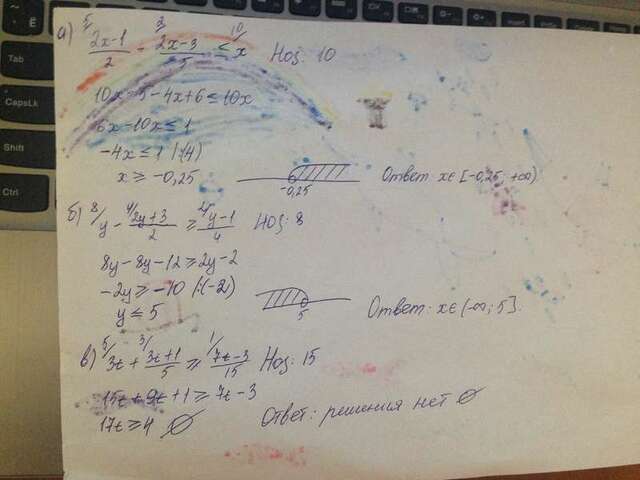 Tab
CapsLk
Shift
Ctrl
а) 5/ 2x-1/2 - 2/ 2x-3/5 ≤ 10/ x Ноз: 10
10x-5-4x+6≤10x
6x-10x≤1
-4x≤1 |·(4)
x ≥ -0,25
-0,25
Ответ: x∈[-0,25; +∞)
б) 8/ y - 4/ 2y+3/2 ≥ 2/ y-1/4 Ноз: 8
8y-8y-12≥2y-2
-2y≥-10 |:(-2)
y ≤ 5
5
Ответ: x∈(-∞; 5].
в) 5/ 3t + 3/ 3t+1/5 ≥ 1/ 7t-3/15 Ноз: 15
15t+9t+1≥7t-3
17t≥4 ∅
Ответ: решения нет ∅